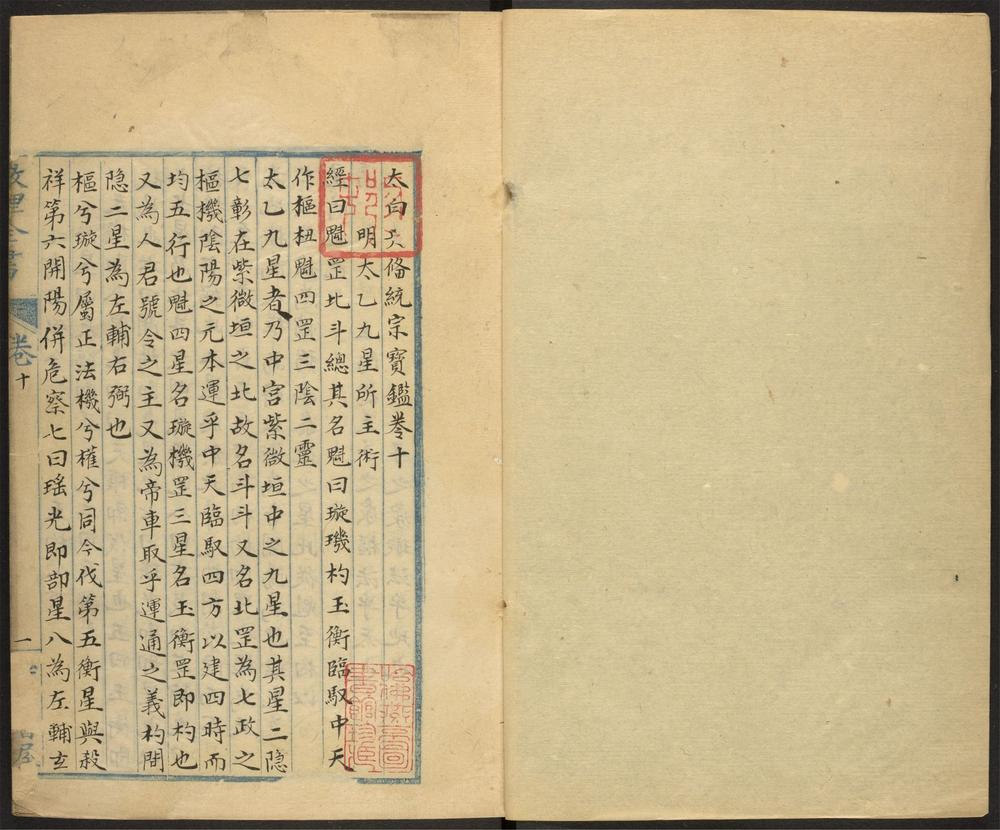 太白天脩統宗寶鑑卷十
明太乙九星所主術
經曰魁罡北斗總其名魁曰璇璣杓玉衡臨馭中天
作樞杻魁四罡三陰二靈
太乙九星者乃中宫紫微垣中之九星也其星二隱
七彰在紫微垣之北故名斗斗又名北罡為七政之
樞機陰陽之元本運乎中天臨馭四方以建四時而
均五行也魁四星名璇機罡三星名玉衡罡即杓也
又為人君號令之主又為帝車取乎運通之義杓間
隐二星為左輔右弼也
樞兮璇兮屬正法機兮權兮同今伐第五衡星與殺
祥第六開陽併危察七曰瑤光即部星八為左輔玄
卷十
一